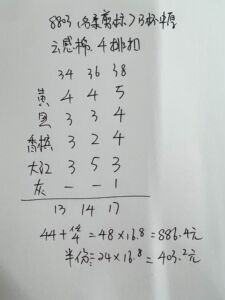 8803 (多条剪标) B杯中厚
云感棉. 4排扣
34 36 38
黄 4 4 5
黑 3 3 4
香槟 3 2 4
大红 3 5 3
灰 - - 1
13 14 17
44+4件=48×16.8=886.4元
半份:=24×16.8=403.2元